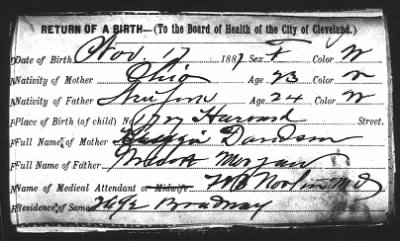 RETURN OF A BIRTH—(To the Board of Health of the City of Cleveland.)
Date of Birth Nov. 17 1887 Sex F Color W
Nativity of Mother Ohio Age 23 Color W
Nativity of Father New York Age 24 Color W
Place of Birth (of child) No 1727 Harvard Street.
Full Name of Mother Davidson
Full Name of Father
Name of Medical Attendant or Midwife. M.D.
Residence of Same 2692 Broadway